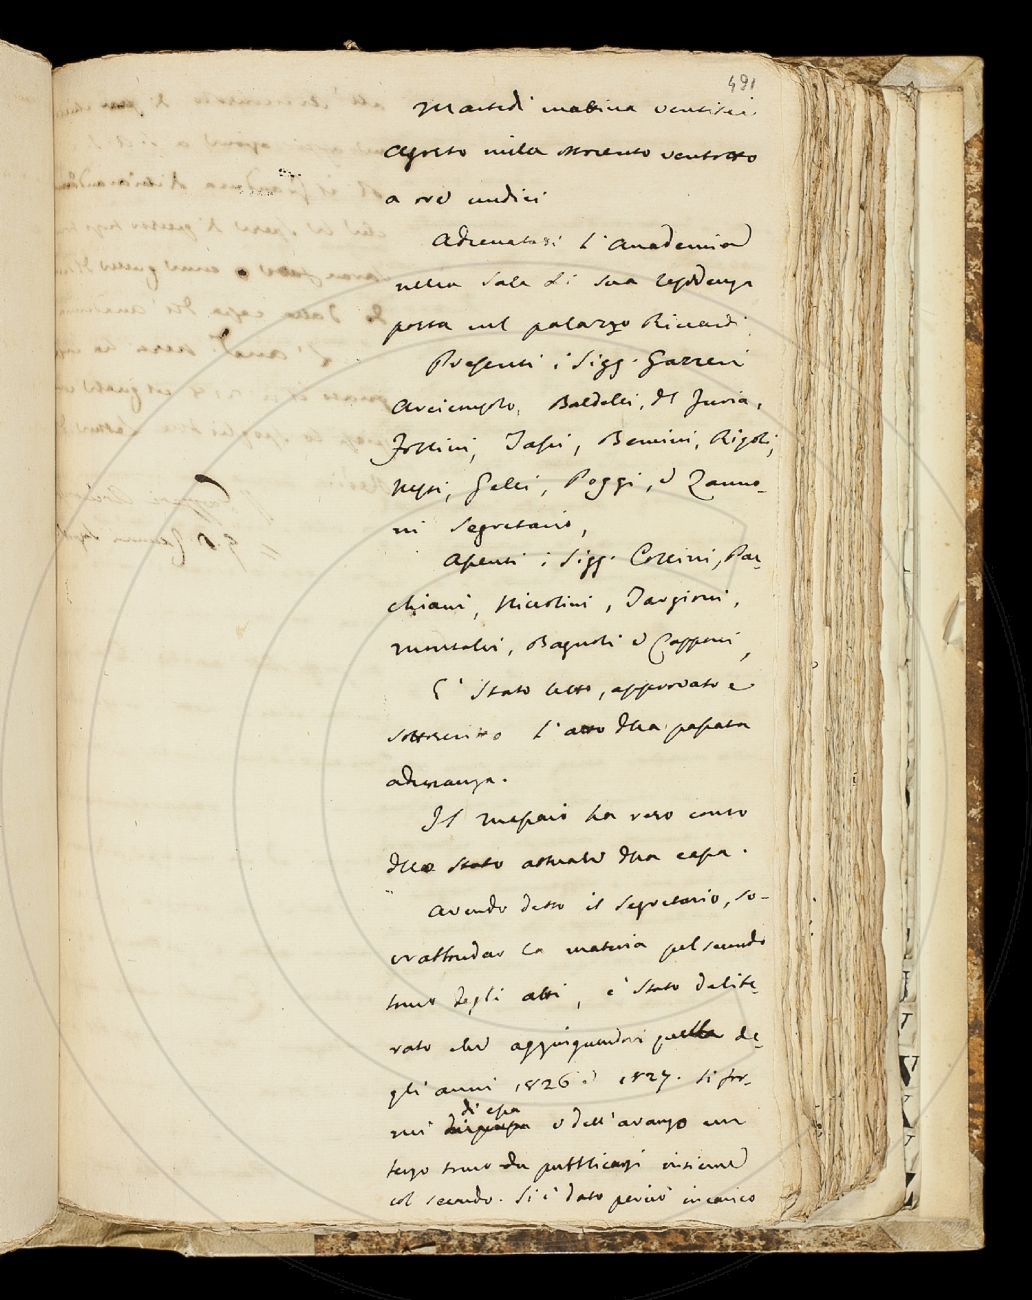 491
Martedì mattina ventisei
Agosto mille ottocento ventotto
a ore undici
Adunatasi l'Accademia
nella Sala di sua residenza
posta nel palazzo Riccardi
Presenti i Sigg. Gazzeri
Arciconsolo, Baldelli, del Furia,
Follini, Sassi, Bencini, Rigoli,
Nesti, Gelli, Poggi, e Zanno-
ni Segretario,
Assenti i Sigg. Collini, Par-
chiani, Niccolini, Targioni,
Montalvi, Bagnoli e Capponi,
E' Stato letto, approvato e
sottoscritto l'atto della passata
adunanza.
Il Massaio ha reso conto
dello stato attuale della cassa.
Avendo detto il Segretario, so-
vrabbondar la materia pel secondo
tomo degli atti, è stato delibe-
rato che aggiungendovi quella de-
gli anni 1826 e 1827. si for-
mi di essa e dell'avanzo un
terzo tomo da pubblicarsi insieme
col secondo. Si è dato perciò incarico